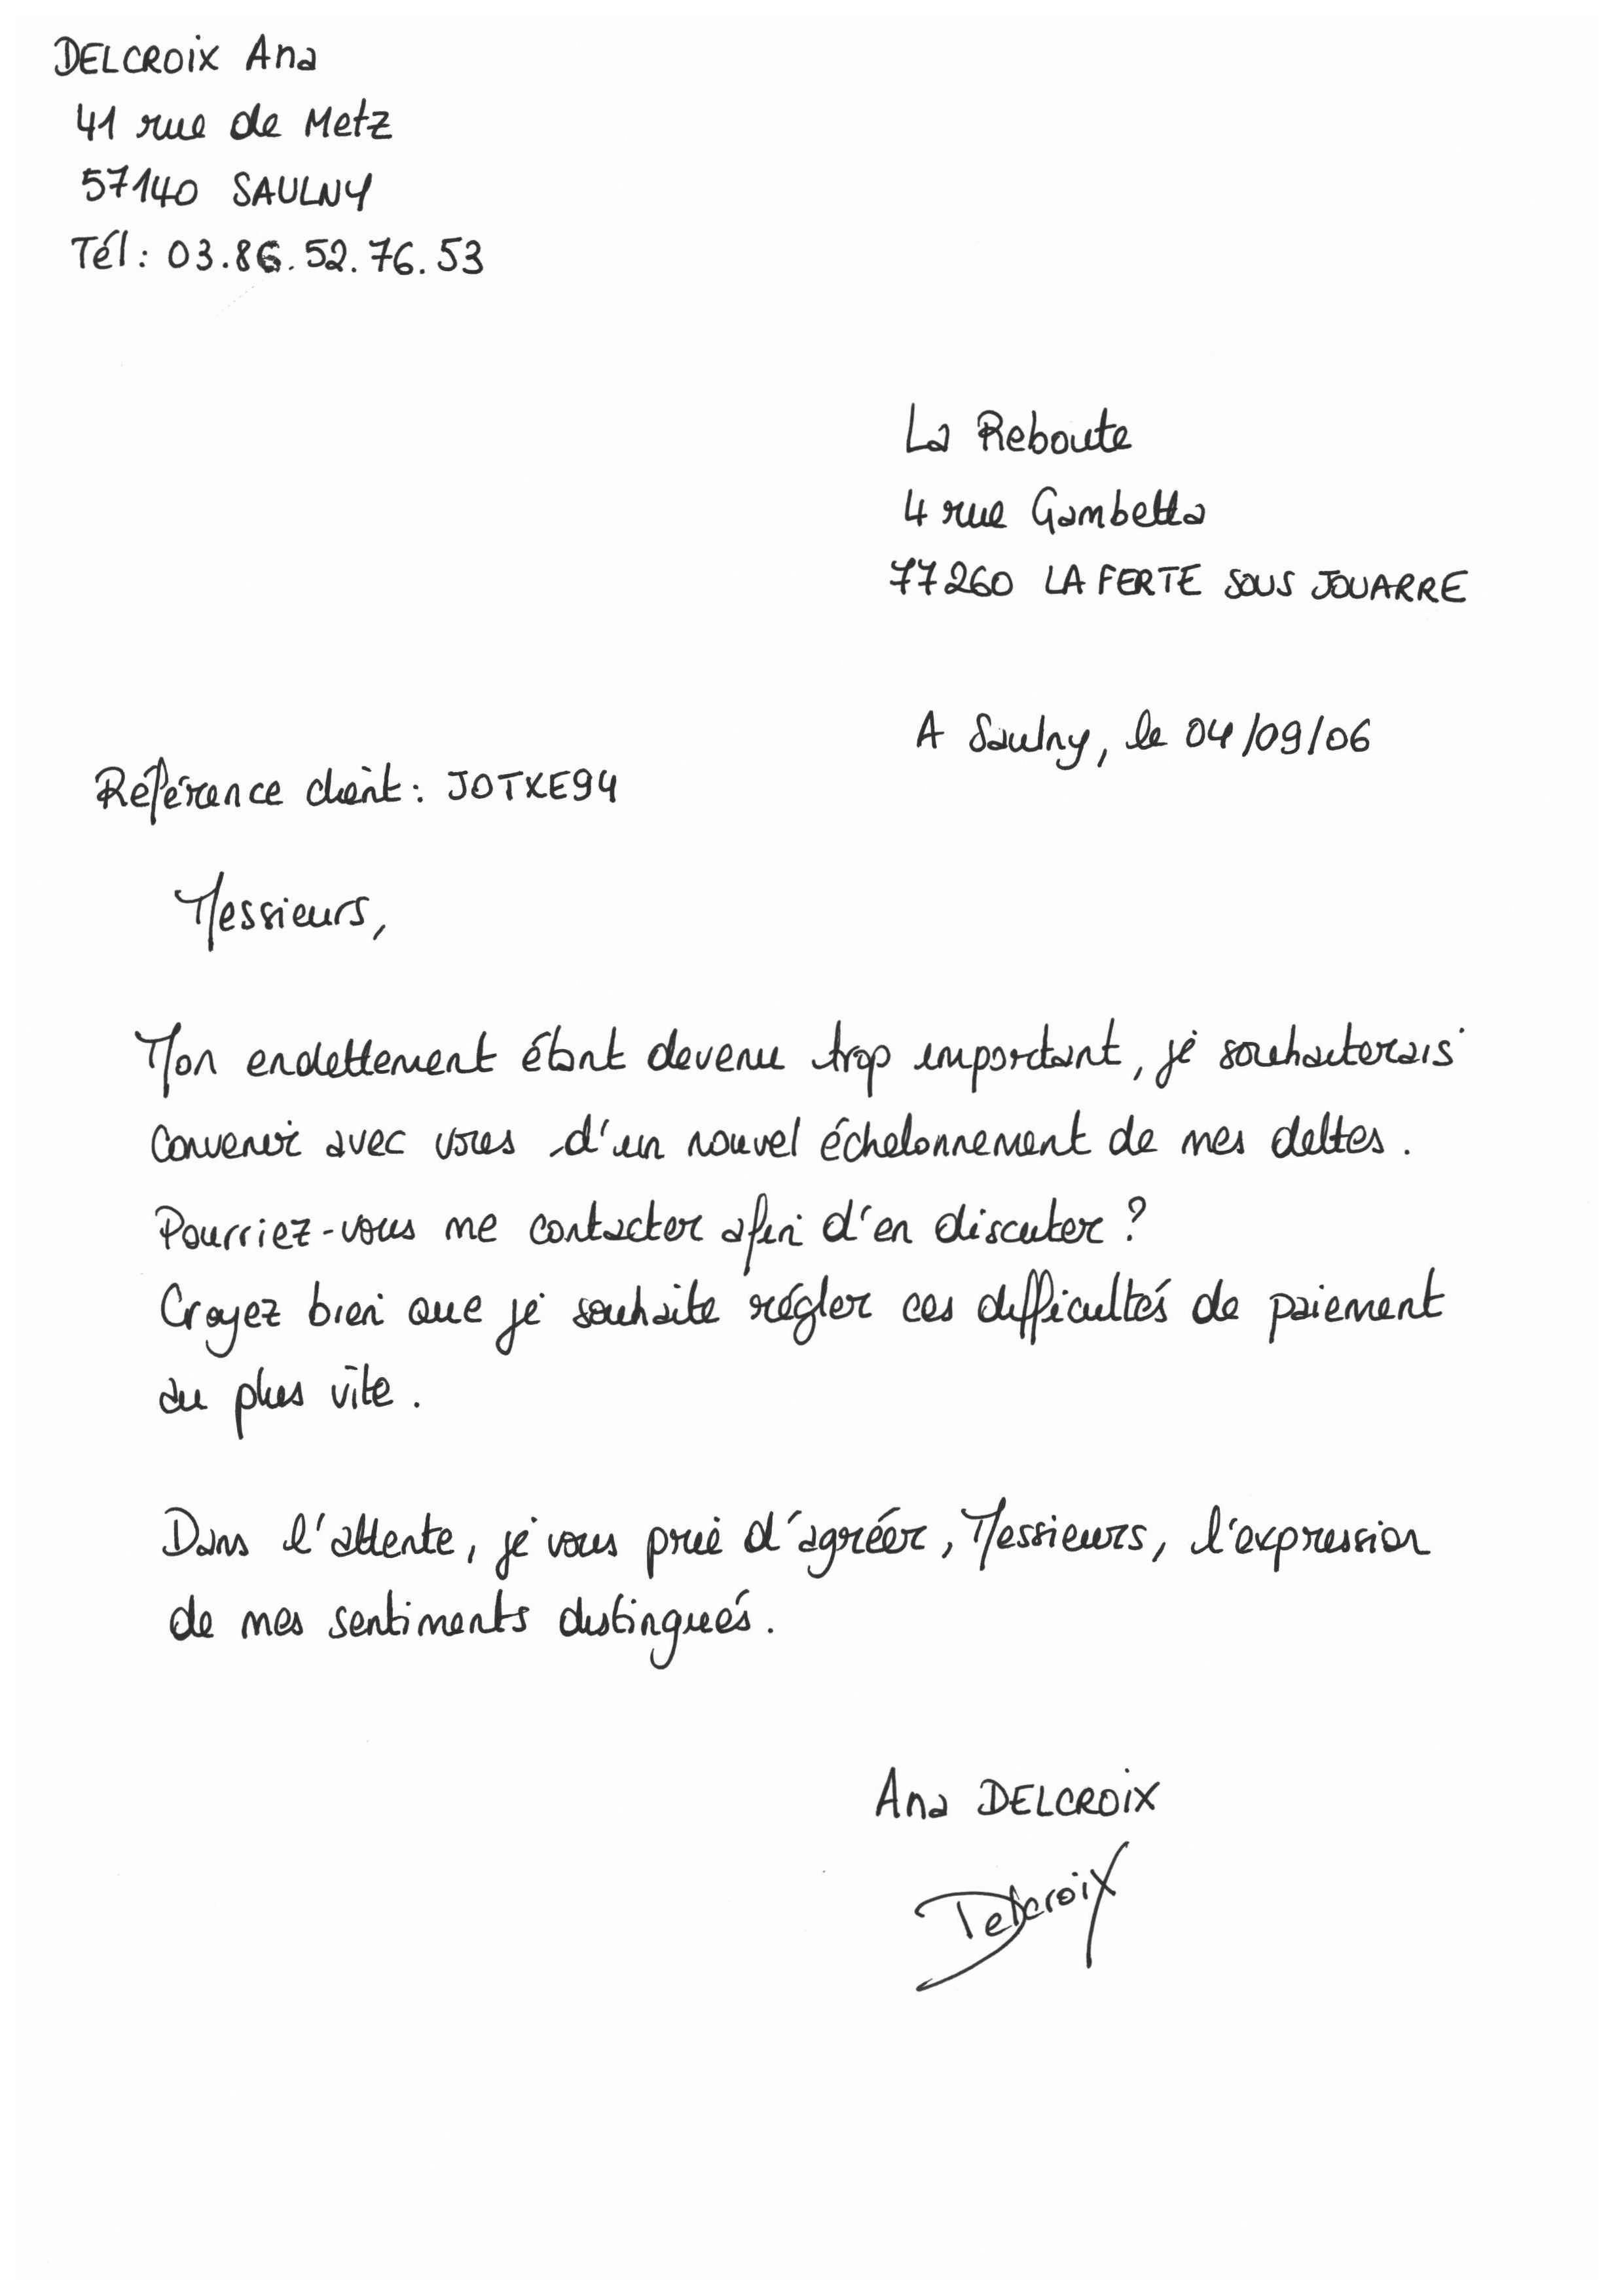 DELCROIX Ana
41 rue de Metz
57140 SAULNY
Tél : 03.86.52.76.53
La Reboute
4 rue Gambetta
77260 LA FERTE SOUS JOUARRE
A Saulny, le 04/09/06
Référence client : JOTXE94
Messieurs,
Mon endettement étant devenu trop important, je souhaiterais
convenir avec vous d'un nouvel échelonnement de mes dettes.
Pourriez-vous me contacter afin d'en discuter ?
Croyez bien que je souhaite régler ces difficultés de paiement
au plus vite.
Dans l'attente, je vous prie d'agréer, Messieurs, l'expression
de mes sentiments distingués.
Ana DELCROIX
Delcroix